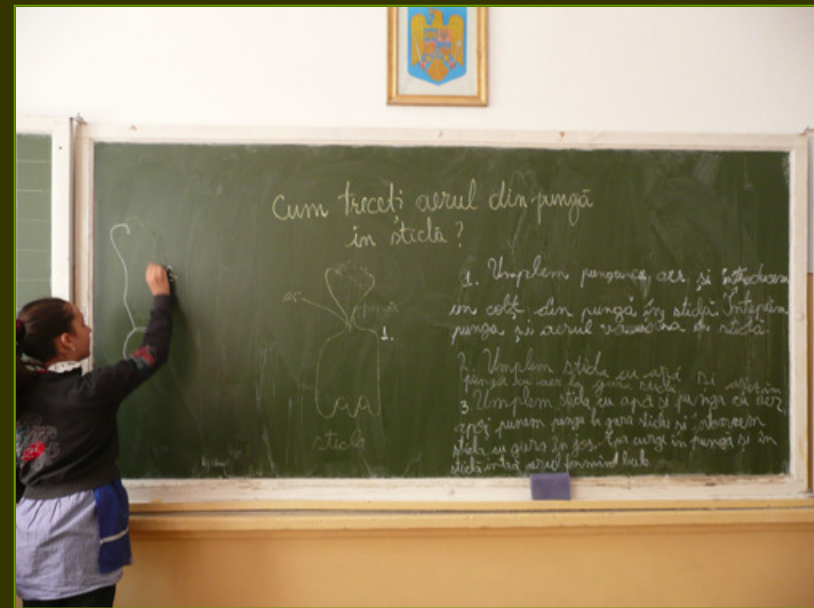 Cum treceți aerul din pungă
in sticlă?
ac
pungă
1.
sticlă
1. Umplem aer și introducem
un colț din pungă în sticlă. Înțepăm
punga și aerul va in sticlă.
2. Umplem sticla cu apă
punga cu aer la gura sticlei și
3. Umplem sticla cu apă și punga cu aer,
apoi punem punga la gura sticlei și întoarcem
sticla cu gura în jos. Apa curge în pungă și în
sticlă intră aerul formind